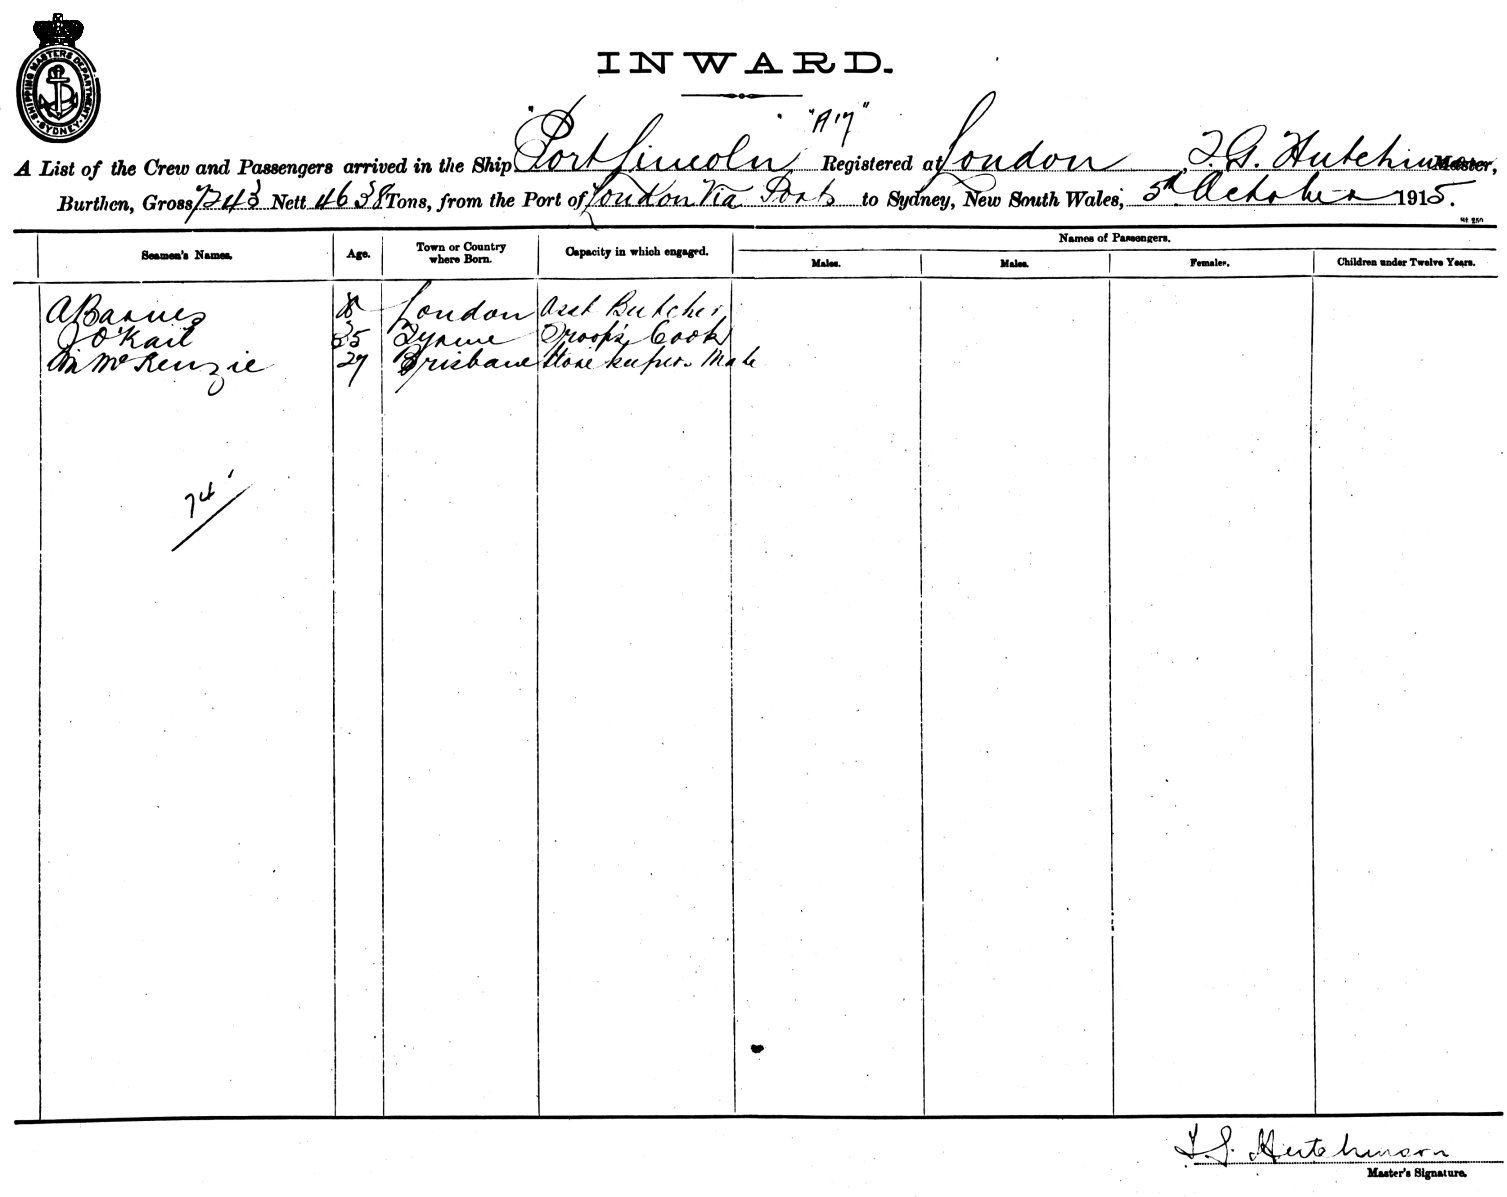 SHIPPING MASTERS DEPARTMENT. SYDNEY.
INWARD.
"A17"
A List of the Crew and Passengers arrived in the Ship "Port Lincoln" Registered at London, T. G. Hutchinson Master,
Burthen, Gross 7243 Nett 4638 Tons, from the Port of London Via Ports to Sydney, New South Wales, 5th October 1915.
Seamen's Names. Age. Town or Country where Born. Capacity in which engaged. Names of Passengers.
Males. Males. Females. Children under Twelve Years.
A Barnes London Asst Butcher
J O'Kait 35 Troop's Cook
McKenzie 27 Brisbane Storekeepers Mate
74
T. G. Hutchinson
Master's Signature.